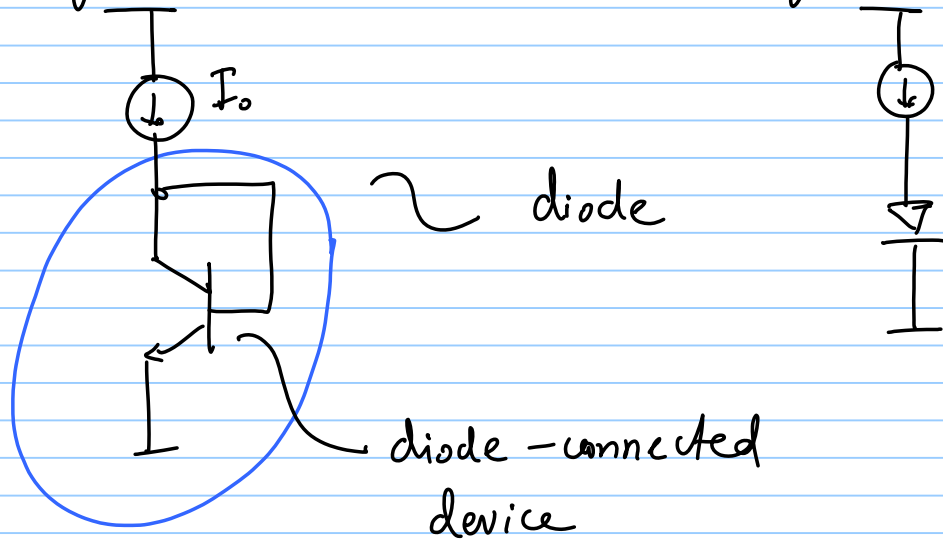 I₀
diode
diode-connected
device